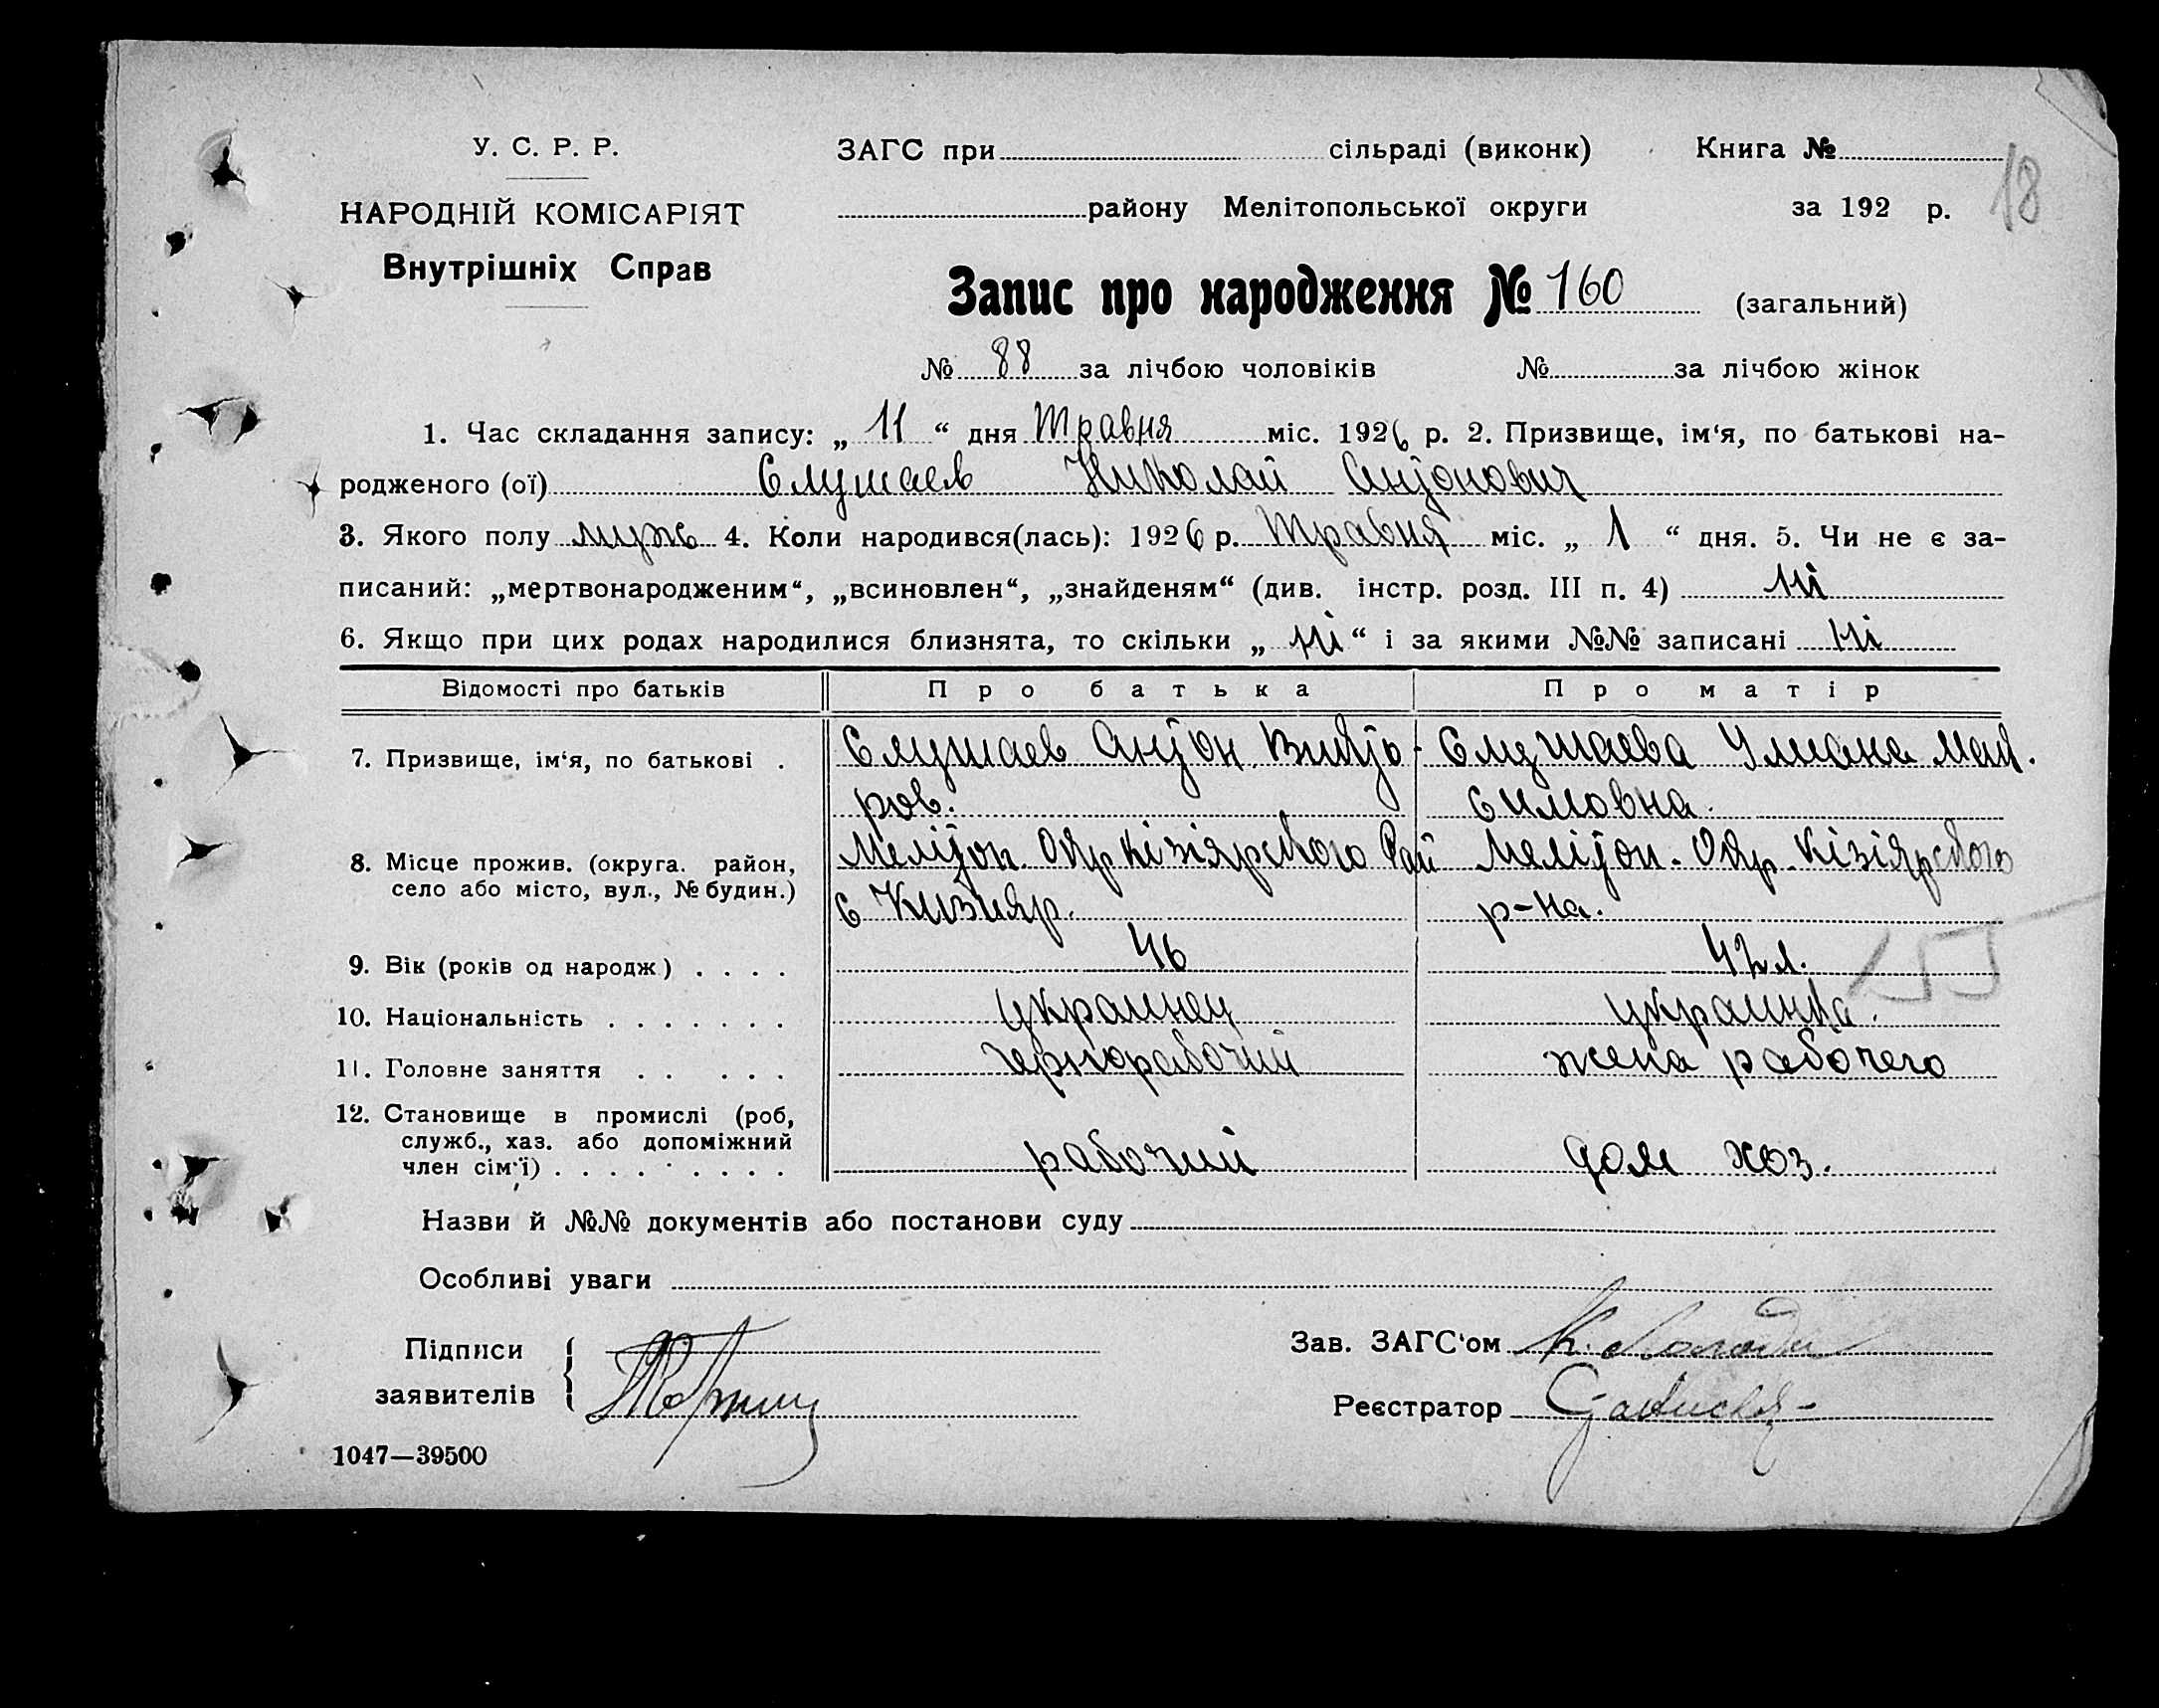 У. С. Р. Р.
НАРОДНІЙ КОМІСАРІЯТ
Внутрішніх Справ
ЗАГС при сільраді (виконк) Книга №
18
району Мелітопольської округи за 192 р.
Запис про народження № 160 (загальний)
№ 88 за лічбою чоловіків № за лічбою жінок
1. Час складання запису: „ 11 “ дня Травня міс. 1926 р. 2. Призвище, ім‘я, по батькові на-
родженого (ої) Слушаев Николай Антонович
3. Якого полу муж 4. Коли народився(лась): 1926 р. Травня міс. „ 1 “ дня. 5. Чи не є за-
писаний: „мертвонародженим“, „всиновлен“, „знайденям“ (див. інстр. розд. III п. 4) ні
6. Якщо при цих родах народилися близнята, то скільки „ ні “ і за якими №№ записані ні
Відомості про батьків Про батька Про матір
7. Призвище, ім‘я, по батькові . Слушаев Антон Викто- Слушаева Улиана Мак.
ров. симовна.
8. Місце прожив. (округа. район, Мелітоп. Окр Кізіярського Рай Мелітоп. Окр. Кізіярського
село або місто, вул., № будин.) с Кизияр. р-на.
9. Вік (років од народж) . . . . 46 42 л.
155
10. Національність . . . . . . . украинец украинка.
11. Головне заняття . . . . . чернорабочий жена рабочего
12. Становище в промислі (роб,
служб., хаз. або допоміжний
член сім‘ї) . . . . . . . . . рабочий дом хоз.
Назви й №№ документів або постанови суду
Особливі уваги
Підписи
заявителів
Зав. ЗАГС‘ом
Реєстратор
1047—39500